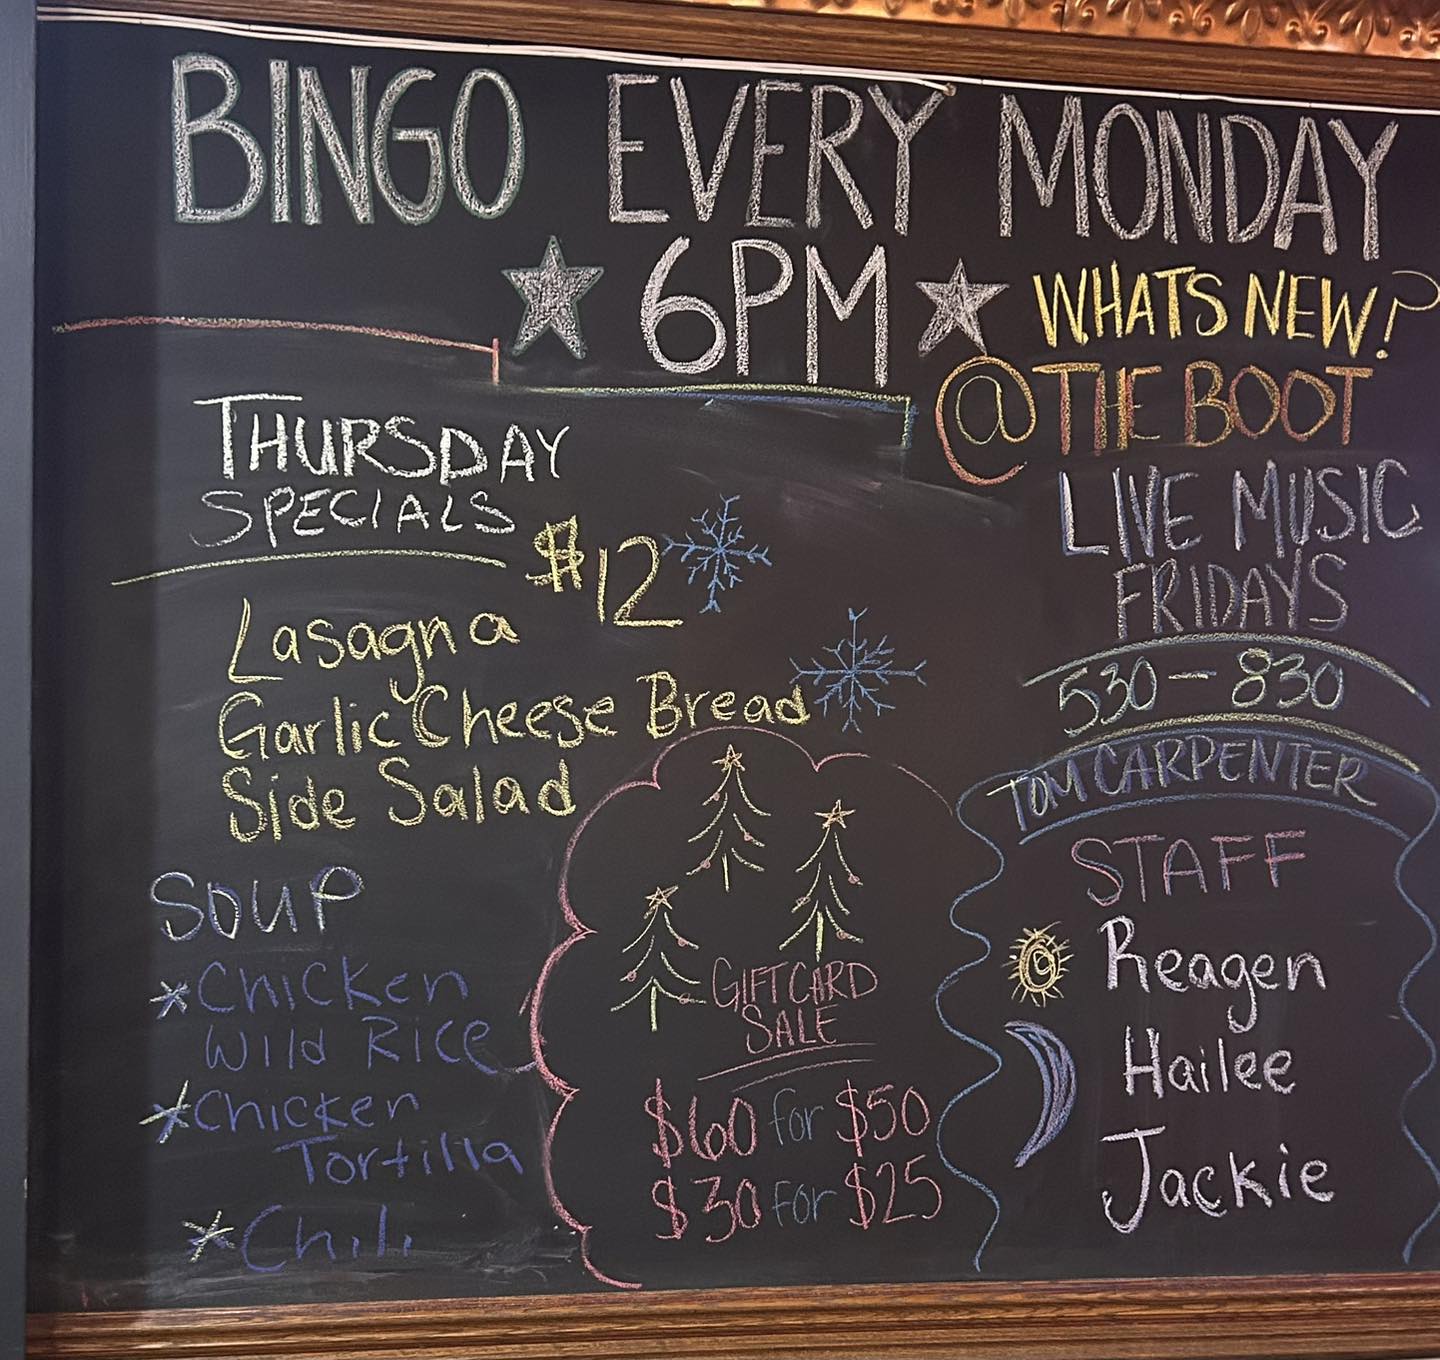 BINGO EVERY MONDAY
6PM
WHATS NEW?
@THE BOOT
LIVE MUSIC
FRIDAYS
530-830
TOM CARPENTER
STAFF
Reagen
Hailee
Jackie
THURSDAY
SPECIALS
$12
Lasagna
Garlic Cheese Bread
Side Salad
SOUP
*Chicken
Wild Rice
*Chicken
Tortilla
*Chili
GIFT CARD
SALE
$60 for $50
$30 for $25